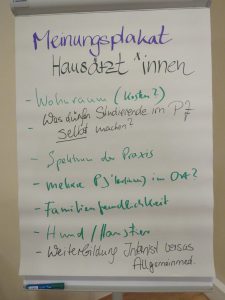 Meinungsplakat
Hausärzt*innen
- Wohnraum (Kosten?)
- Was dürfen Studierende im PJ
selbst machen?
- Spektrum der Praxis
- mehrere PJ'ler im Ort?
- Familienfreundlichkeit
- Hund / Haustier
- Weiterbildung Internist versus
Allgemeinmed.